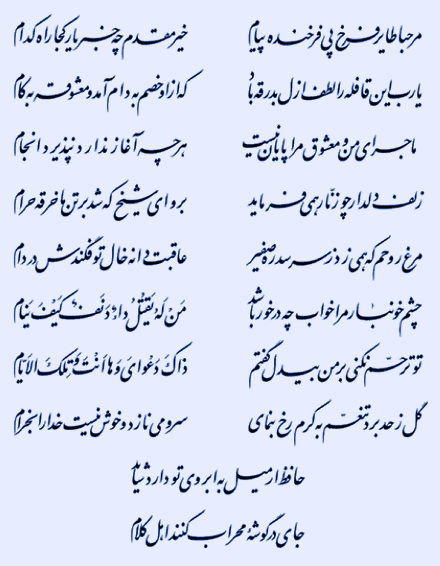 مرحبا طایر فرخ پی فرخنده پیام خیر مقدم چه خبر یار کجا راه کدام
یارب این قافله را لطف ازل بدرقه باد که ازاو خصم به دام آمد و معشوقه به کام
ماجرای من و معشوق مرا پایان نیست هرچه آغاز ندارد نپذیرد انجام
زلف دلدار چو زنار همی فرماید برو ای شیخ که شد بر تن ما خرقه حرام
مرغ روحم که همی زد ز سر سدره صفیر عاقبت دانه خال تو فکندش در دام
چشم خونبار مرا خواب چه درخور باشد مَنْ لَهُ یَقْتُلُ داءٌ دَنَفٌ کَیْفَ یَنام
تو ترحم نکنی بر من بیدل گفتم ذاکَ دَعْوایَ وَها أنْتَ وَتِلْکَ الأیّام
گل ز حد برد تنعم به کرم رخ بنمای سرو می نازد و خوش نیست خدا را بخرام
حافظ ار میل به ابروی تو دارد شاید
جای در گوشهٔ محراب کنند اهل کلام